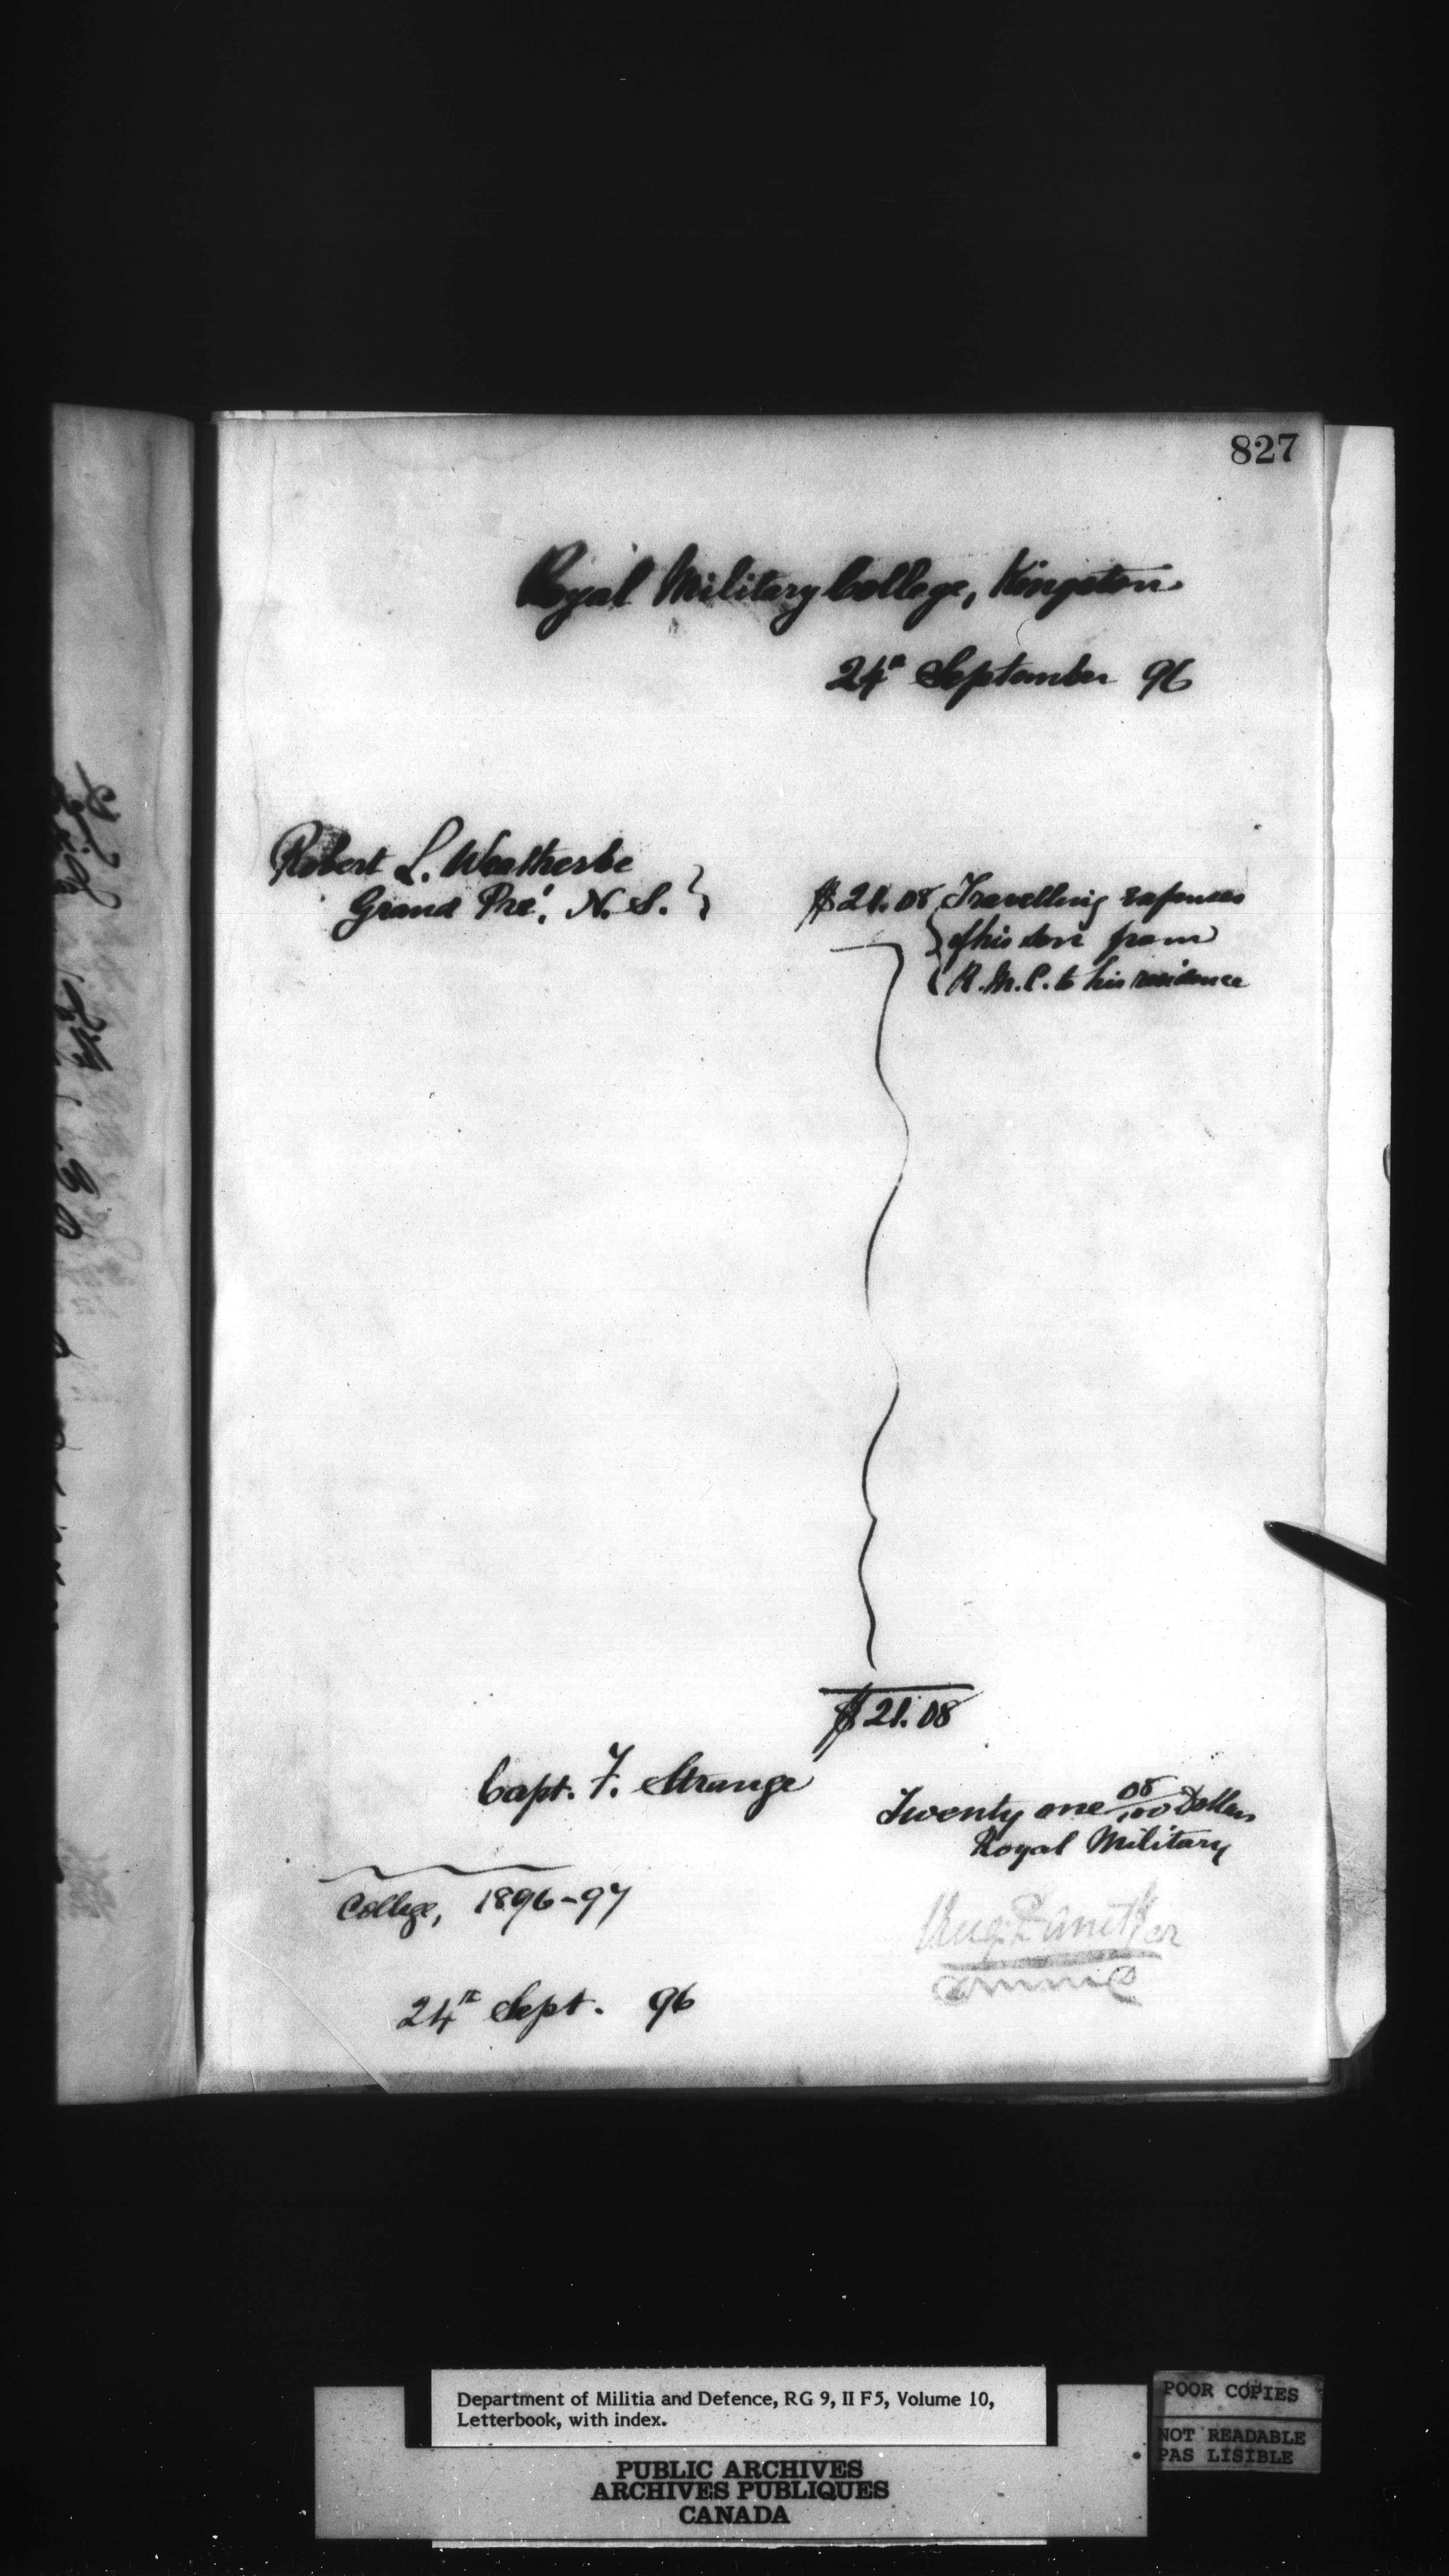 827
Royal Military College, Kingston
24th September 96
Robert L. Weatherbe
Grand Pré, N. S.
$21.08 Travelling expenses
of his son from
R.M.C. to his residence
$21.08
Capt. F. Strange
Twenty one 08/100 Dollars
Royal Military
College, 1896-97
24th Sept. 96
Department of Militia and Defence, RG 9, II F5, Volume 10,
Letterbook, with index.
PUBLIC ARCHIVES
ARCHIVES PUBLIQUES
CANADA
POOR COPIES
NOT READABLE
PAS LISIBLE